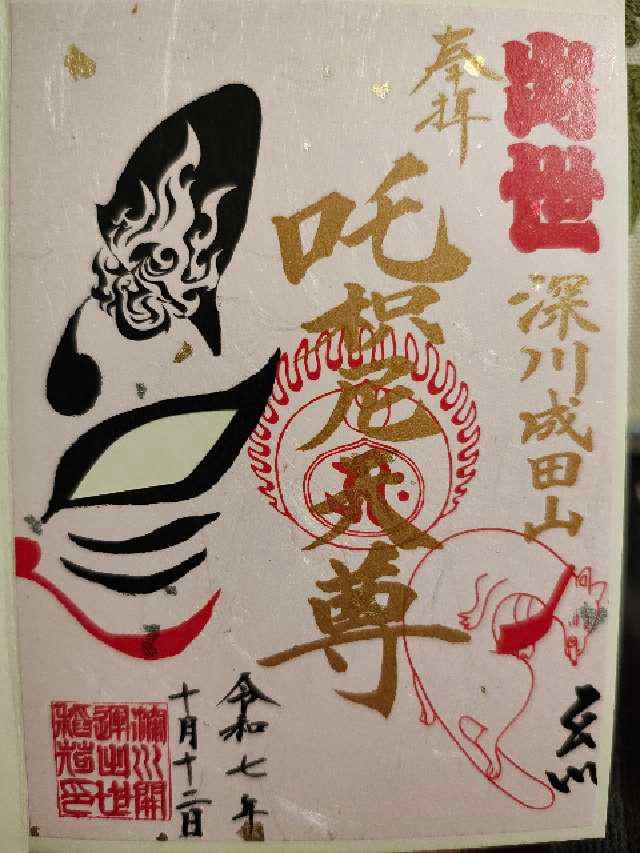 出世
深川成田山
奉拝
吒枳尼天尊
令和七年
十月十二日
深川開
運出世
稲荷印